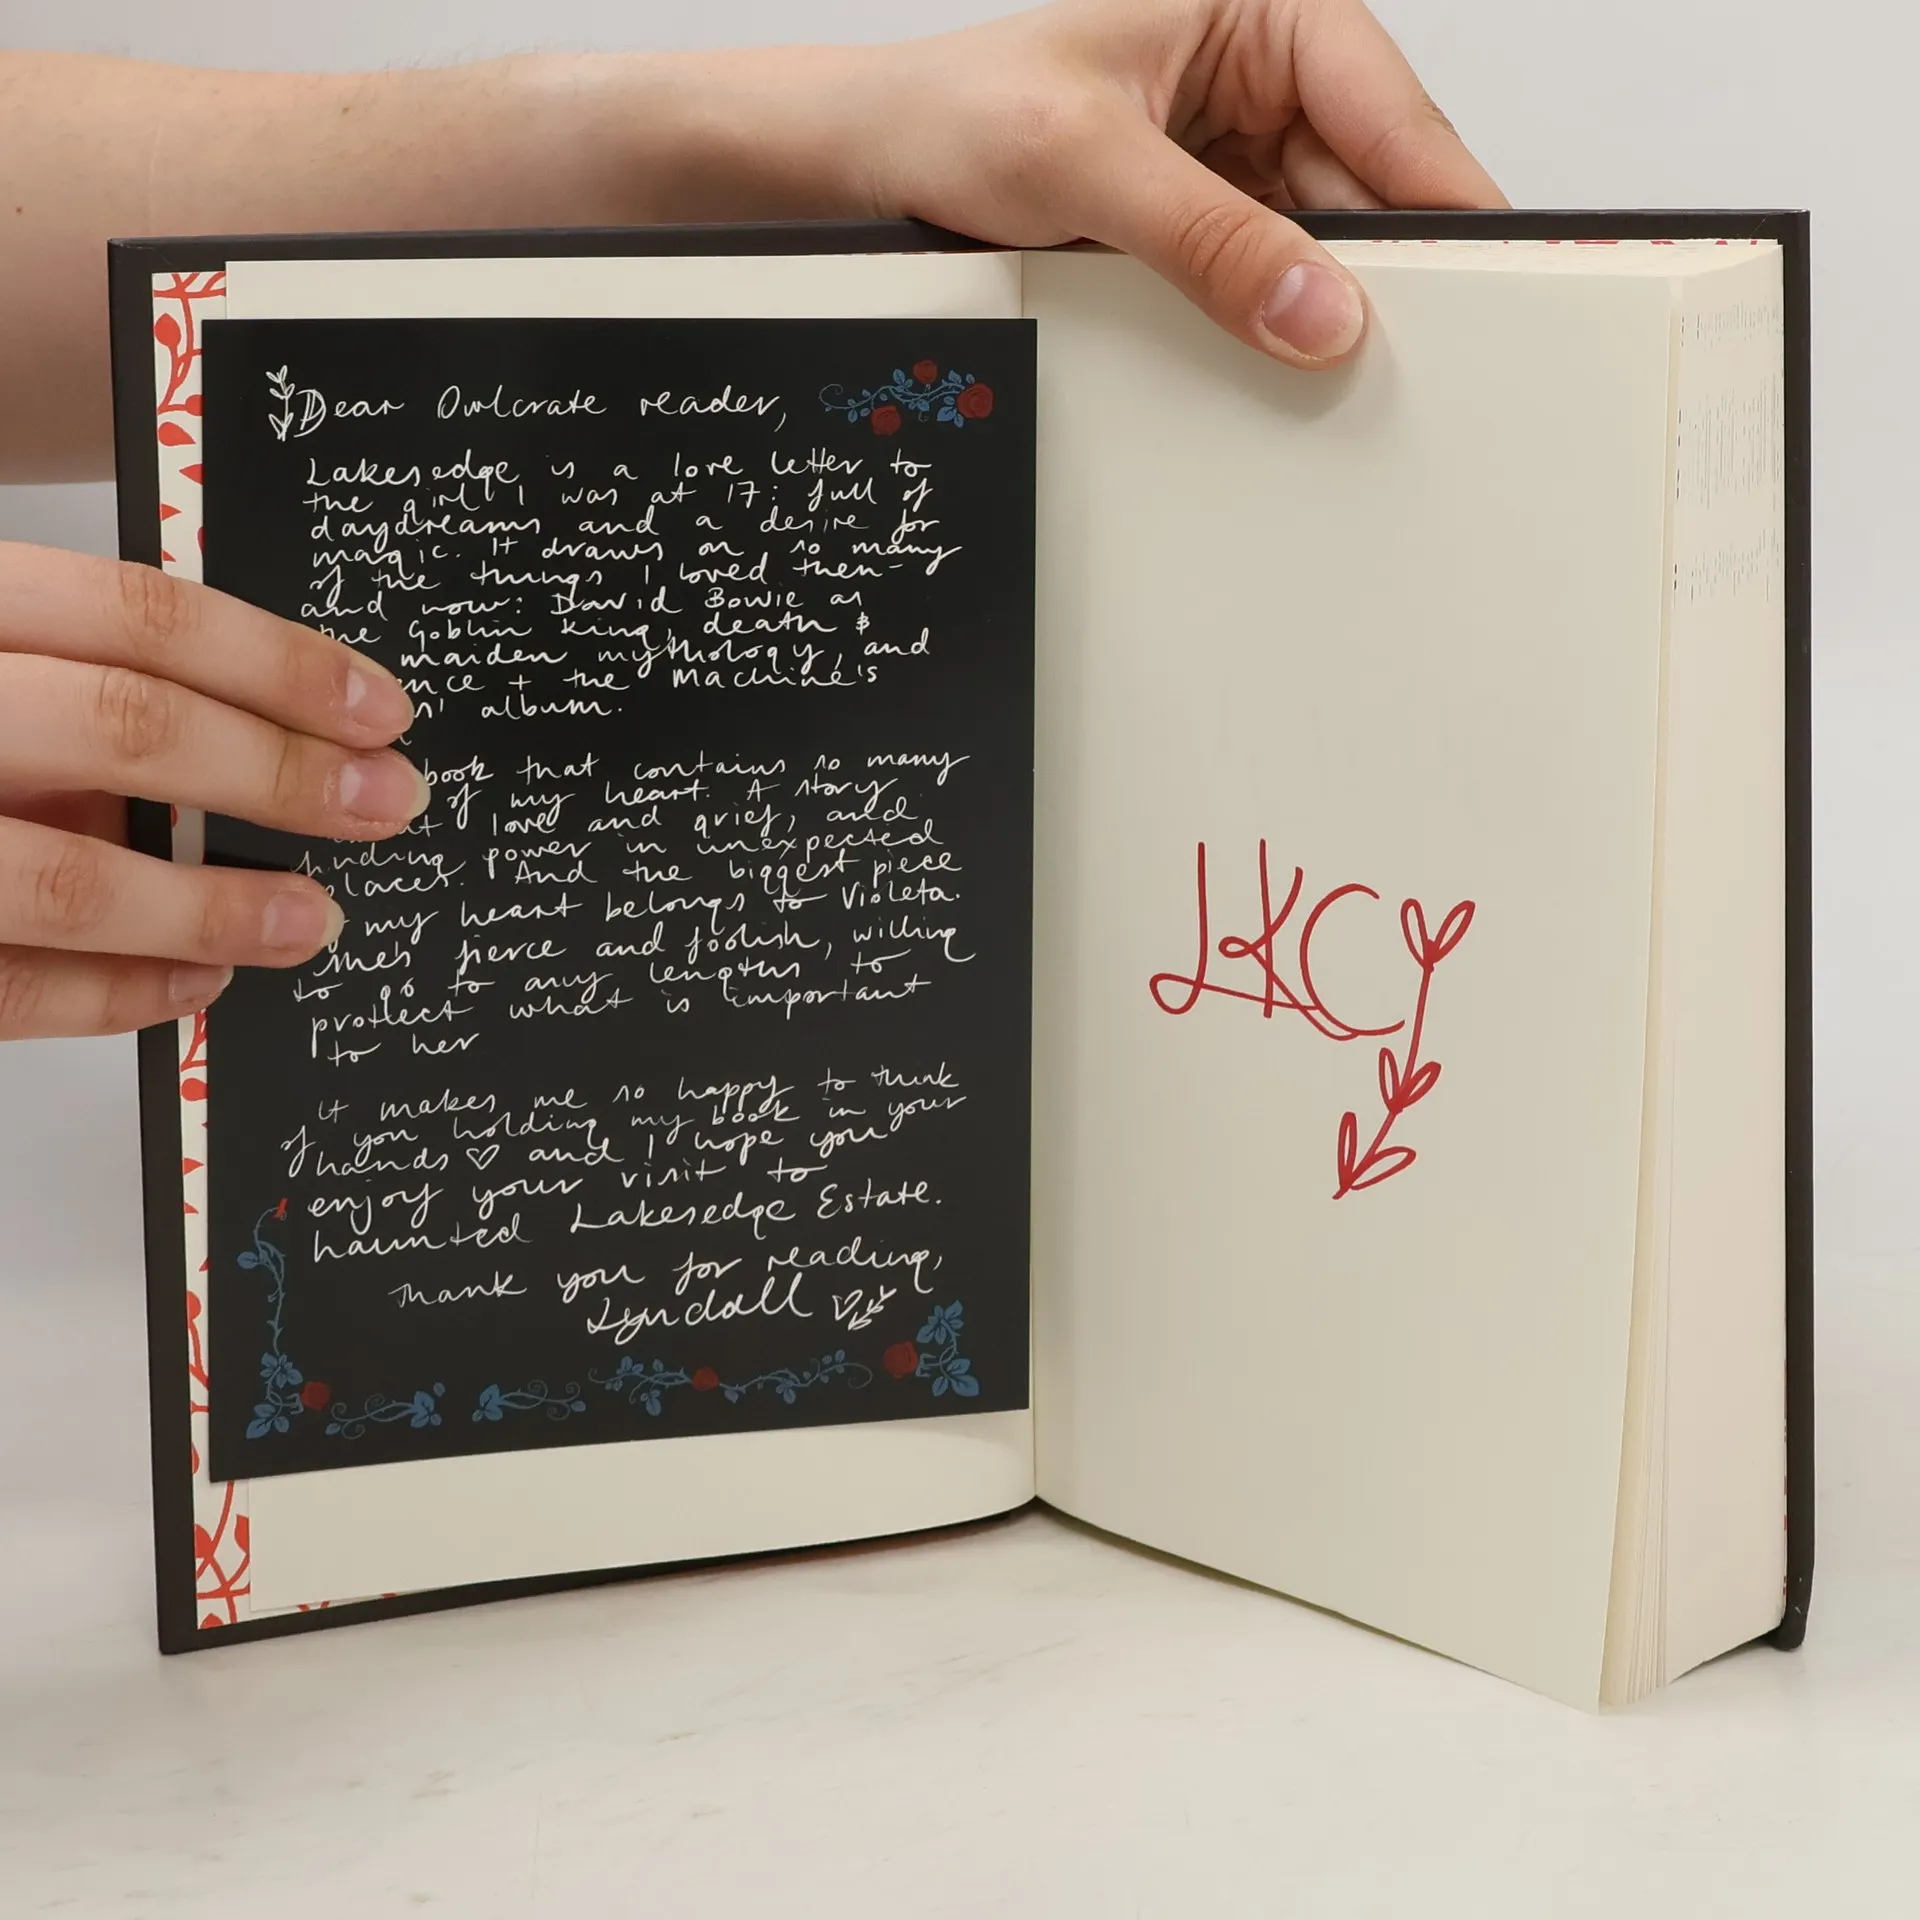 Dear Owlcrate reader,
Lakesedge is a love letter to
the girl I was at 17: full of
daydreams and a desire for
magic. It draws on so many
of the things I loved then-
and now: David Bowie as
the Goblin King, death &
maiden mythology, and
ence + the Machine's
album.
book that contains so many
of my heart. A story
love and grief, and
finding power in unexpected
places. And the biggest piece
my heart belongs to Violeta.
She's fierce and foolish, willing
to go to any lengths to
protect what is important
to her
It makes me so happy to think
of you holding my book in your
hands ♡ and I hope you
enjoy your visit to
haunted Lakesedge Estate.
Thank you for reading,
Lyndall ♡
LKC